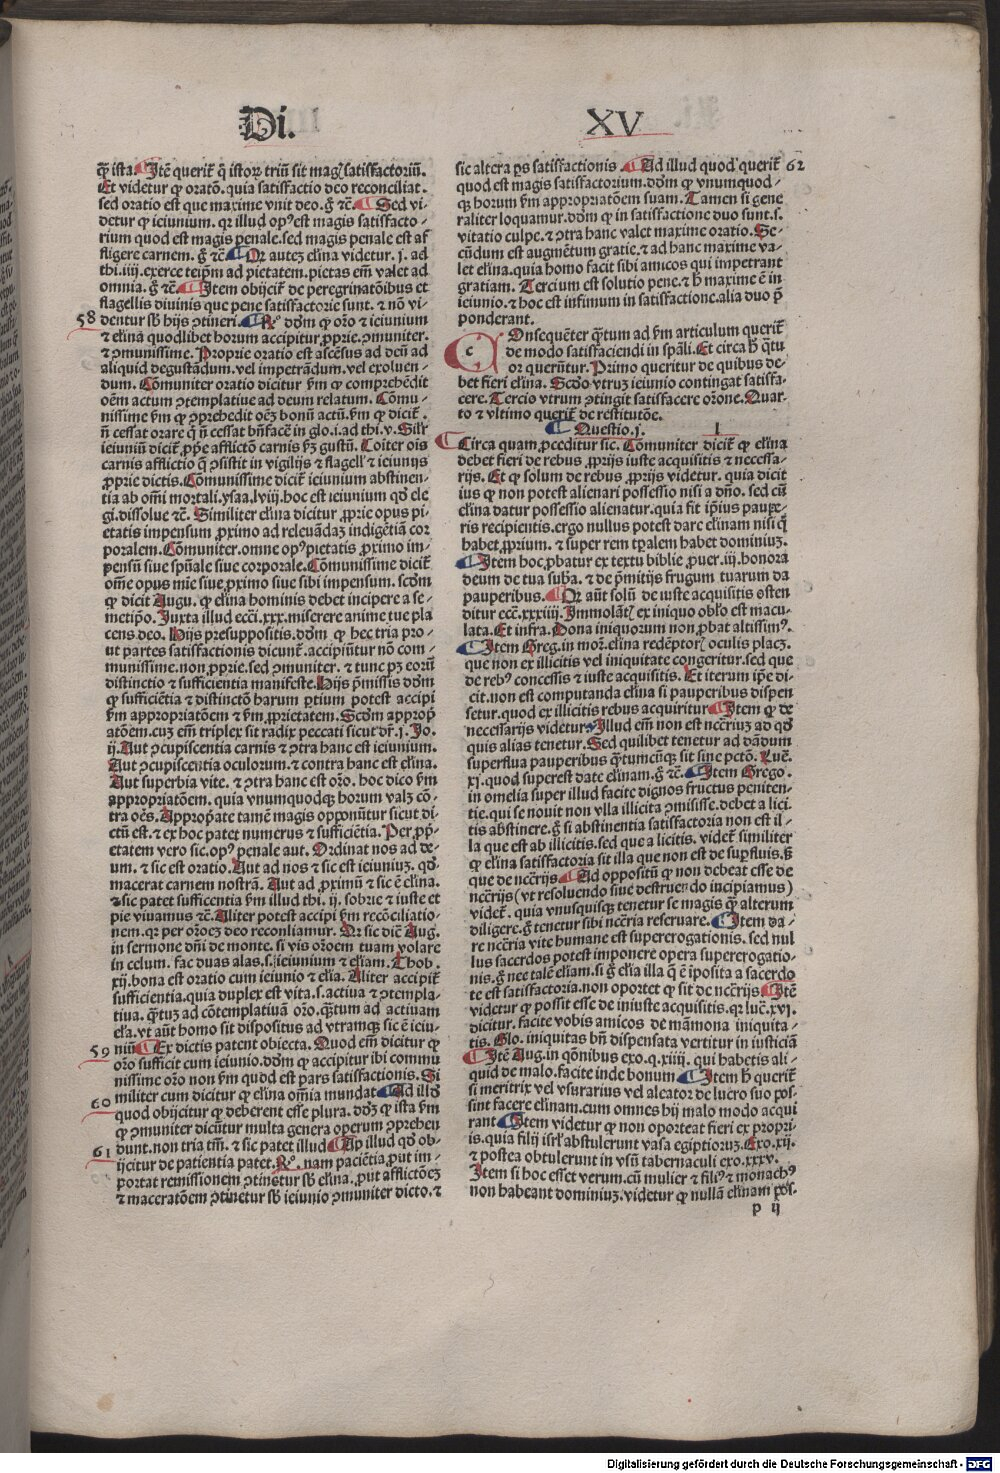 Di. XV
qꝫ ista. Itē querit̃ q̃ istoꝝ triū sit mag̃ satisfactoriū.
Et videtur ꝙ oratō. quia satisfactio deo reconciliat.
sed oratio est que maxime vnit deo. g̃ ⁊c̃. Sed vi-
detur ꝙ ieiunium. qꝛ illud opꝰ est magis satisfacto-
rium quod est magis penale. sed magis penale est af
fligere carnem. g̃ ⁊c̃. Qꝛ autē elīna videtur. j. ad
thi. iiij. exerce teip̄m ad pietatem. pietas em̄ valet ad
omnia. g̃ ⁊c̃. Item obijcit̃ de peregrinatōibus et
flagellis diuinis que pene satisfactorie sunt. ⁊ nō vi
58 dentur sb̄ hijs ꝯtineri. Rꝰ. dd̄m ꝙ oꝛ̄o ⁊ ieiunium
⁊ elīna quodlibet horum accipitur ꝓprie. ꝯmuniter.
⁊ ꝯmunissime. Proprie oratio est ascēsus ad deū ad
aliquid degustādum. vel impetrādum. vel exoluen-
dum. Cōmuniter oratio dicitur ẜm ꝙ comprehēdit
oēm actum ꝯtemplatiue ad deum relatum. Cōmu-
nissime ẜm ꝙ ꝯprehedit oēꝫ bonū actū. ẜm ꝙ dicit̃.
n̄ cessat orare q̃ n̄ cessat bn̄facē in glo. i. ad thi. v. Silr̄
ieiuniū dicit̃ ꝓpe afflictō carnis pꝫ gustū. Coiter ois
carnis afflictio q̃ ꝯsistit in vigilijs ⁊ flagell̃ ⁊ ieiunijs
ꝓprie dictis. Cōmunissime dicit̃ ieiunium abstinen-
tia ab om̄i mortali. ysaa. lviij. hoc est ieiunium qd̄ ele
gi. dissolue ⁊c̃. Similiter elīna dicitur ꝓprie opus pi-
etatis impensum ꝓximo ad releuādaꝫ indigētiā cor
poralem. Cōmuniter. omne opꝰ pietatis ꝓximo im-
pensū siue spūale siue corporale. Cōmunissime dicit̃
om̄e opus mīe siue ꝓximo siue sibi impensum. scd̄m
ꝙ dicit Augu. ꝙ elīna hominis debet incipere a se-
metip̄o. Juxta illud ecc̄i. xxx. miserere anime tue pla
cens deo. Hijs presuppositis. dd̄m ꝙ hec tria pro-
ut partes satisfactionis dicunt̃. accipiūtur nō com-
munissime. non ꝓprie. sed ꝯmuniter. ⁊ tunc pꝫ eoꝝ
distinctio ⁊ sufficientia manifeste. Hijs p̄missis dd̄m
ꝙ sufficiētia ⁊ distinctō harum ꝑtium potest accipi
ẜm appropriatōem ⁊ ẜm ꝓprietatem. Scd̄m approp̄
atōem. cuꝫ em̄ triplex sit radix peccati sicut dr̄. j. Jo.
ij. Aut ꝯcupiscentia carnis ⁊ ꝯtra hanc est ieiunium.
Aut ꝯcupiscentia oculorum. ⁊ contra hanc est elīna.
Aut superbia vite. ⁊ ꝯtra hanc est oꝛ̄o. hoc dico ẜm
appropriatōem. quia vnumquodqꝫ horum valꝫ cō-
tra oēs. Approp̄ate tamē magis opponūtur sicut di-
ctū est. ⁊ ex hoc patet numerus ⁊ sufficiētia. Per ꝓp̄-
etatem vero sic. opꝰ penale aut. Ordinat nos ad de-
um. ⁊ sic est oratio. Aut ad nos ⁊ sic est ieiuniuꝫ. qd̄
macerat carnem nostrā. Aut ad ꝓximū ⁊ sic ē elīna.
⁊ sic patet sufficentia ẜm illud thi. ij. sobrie ⁊ iuste et
pie viuamus ⁊c̃. Aliter potest accipi ẜm recōciliatio-
nem. qꝛ per oꝛ̄oeꝫ deo reconliamur. Qꝛ sic diē Aug.
in sermone dn̄i de monte. si vis oꝛ̄oem tuam volare
in celum. fac duas alas. s. ieiunium ⁊ elīam. Thob.
xij. bona est oratio cum ieiunio ⁊ elīa. Aliter accipit̃
sufficientia. quia duplex est vita. s. actiua ⁊ ꝯtempla-
tiua. q̃tuꝫ ad cōtemplatiuā oꝛ̄o. q̃tum ad actiuam
elīa. vt aūt homo sit dispositus ad vtramqꝫ sic ē ieiu-
59 niū. Ex dictis patent obiecta. Quod em̄ dicitur ꝙ
oꝛ̄o sufficit cum ieiunio. dd̄m ꝙ accipitur ibi commu
nissime oꝛ̄o non ẜm quōd est pars satisfactionis. Si
militer cum dicitur ꝙ elīna om̄ia mundat. Ad illd̄
60 quod obijcitur ꝙ deberent esse plura. dd̄ꝫ ꝙ ista ẜm
ꝙ ꝯmuniter dicūtur multa genera operum ꝯprehen
61 dunt. non tria tm̄. ⁊ sic patet illud. Ap illud qd̄ ob-
ijcitur de patientia patet. Rꝰ. nam paciētia ꝓut im-
portat remissionem ꝯtinetur sb̄ elīna. put afflictōeꝫ
⁊ maceratōem ꝯtinetur sb̄ ieiunio ꝯmuniter dicto. ⁊
sic altera ꝑs satisfactionis. Ad illud quod querit̃ 62
quod est magis satisfactorium. dd̄m ꝙ vnumquod-
qꝫ horum ẜm appropriatōem suam. Tamen si gene
raliter loquamur. dd̄m ꝙ in satisfactione duo sunt. s.
vitatio culpe. ⁊ ꝯtra hanc valet maxime oratio. Se-
cūdum est augmētum gratie. ⁊ ad hanc maxime va-
let elīna. quia homo facit sibi amicos qui impetrant
gratiam. Tercium est solutio pene. ⁊ h̄ maxime ē in
ieiunio. ⁊ hoc est infimum in satisfactione. alia duo p̄
ponderant.
Onsequēter q̃tum ad ẜm articulum querit̃
c de modo satisfaciendi in sp̄ali. Et circa h̄ q̃tu
or querūtur. Primo queritur de quibus de-
bet fieri elīna. Scd̄o vtruꝫ ieiunio contingat satisfa-
cere. Tercio vtrum ꝯtingit satisfacere oꝛ̄one. Quar-
to ⁊ vltimo querit̃ de restitutōe.
Questio. j. 1
Circa quam ꝓceditur sic. Cōmuniter dicit̃ ꝙ elīna
debet fieri de rebus ꝓprijs iuste acquisitis ⁊ necessa-
rijs. Et ꝙ solum de rebus ꝓprijs videtur. quia dicit
ius ꝙ non potest alienari possessio nisi a dn̄o. sed cū
elīna datur possessio alienatur. quia fit ip̄ius paupe-
ris recipientis. ergo nullus potest dare elīnam nisi q̃
habet ꝓprium. ⁊ super rem tp̄alem habet dominiuꝫ.
Item hoc ꝓbatur ex textu biblie ꝓuer. iij. honora
deum de tua sub̄a. ⁊ de p̄mitijs frugum tuarum da
pauperibus. Qꝛ aūt solū de iuste acquisitis osten
ditur ecc̄. xxxiiij. Immolāt̃ ex iniquo obl̄o est macu-
lata. Et infra. Dona iniquorum non ꝓbat altissimꝰ.
Item Greg. in mor. elīna redēptor̃ oculis placꝫ.
que non ex illicitis vel iniquitate congeritur. sed que
de rebꝰ concessis ⁊ iuste acquisitis. Et iterum ip̄e di-
cit. non est computanda elīna si pauperibus dispen
setur. quod ex illicitis rebus acquiritur. Item ꝙ de
necessarijs videtur. Illud em̄ non est nc̄crium ad qd̄
quis alias tenetur. Sed quilibet tenetur ad dādum
superflua pauperibus q̃tumcūqꝫ sit sine pctō. Lucē.
xj. quod superest date elīnam. g̃ ⁊c̃. Item Grego.
in omelia super illud facite dignos fructus peniten-
tie. qui se nouit non vlla illicita ꝯmisisse. debet a lici-
tis abstinere. g̃ si abstinentia satisfactoria non est il-
la que est ab illicitis. sed que a licitis. videt̃ similiter
ꝙ elīna satisfactoria sit illa que non est de suꝑfluis. ꝫ
que de nc̄crijs. Ad oppositū ꝙ non debeat esse de
nc̄crijs (vt resoluendo siue destruendo incipiamus)
videt̃. quia vnusquisqꝫ tenetur se magis q̃ alterum
diligere. g̃ tenetur sibi nc̄cria reseruare. Item da-
re nc̄cria vite humane est supererogationis. sed nul
lus sacerdos potest imponere opera supererogatio-
nis. g̃ nec talē elīam. si g̃ elīa illa q̃ ē īposita a sacerdo
te est satisfactoria. non oportet ꝙ sit de nc̄crijs. Itē
videtur ꝙ possit esse de iniuste acquisitis. qꝛ luc̄. xvj.
dicitur. facite vobis amicos de māmona iniquita-
tis. Glo. iniquitas bn̄ dispensata vertitur in iusticiā
Itē Aug. in q̄onibus exo. q. xiiij. qui habetis ali-
quid de malo. facite inde bonum. Item h̄ querit̃
si meritrix vel vsurarius vel aleator de lucro suo pos-
sint facere elīnam. cum omnes hij malo modo acqui
rant. Item videtur ꝙ non oporteat fieri ex propri-
is. quia filij isrl̄ abstulerunt vasa egiptioruꝫ. Exo. xij.
⁊ postea obtulerunt in vsū tabernaculi exo. xxxv.
Item si hoc esset verum. cū mulier ⁊ filiꝰ ⁊ monachꝰ
non habeant dominiuꝫ. videtur ꝙ nullā elīnam pos.
p ij
Digitalisierung gefördert durch die Deutsche Forschungsgemeinschaft - DFG